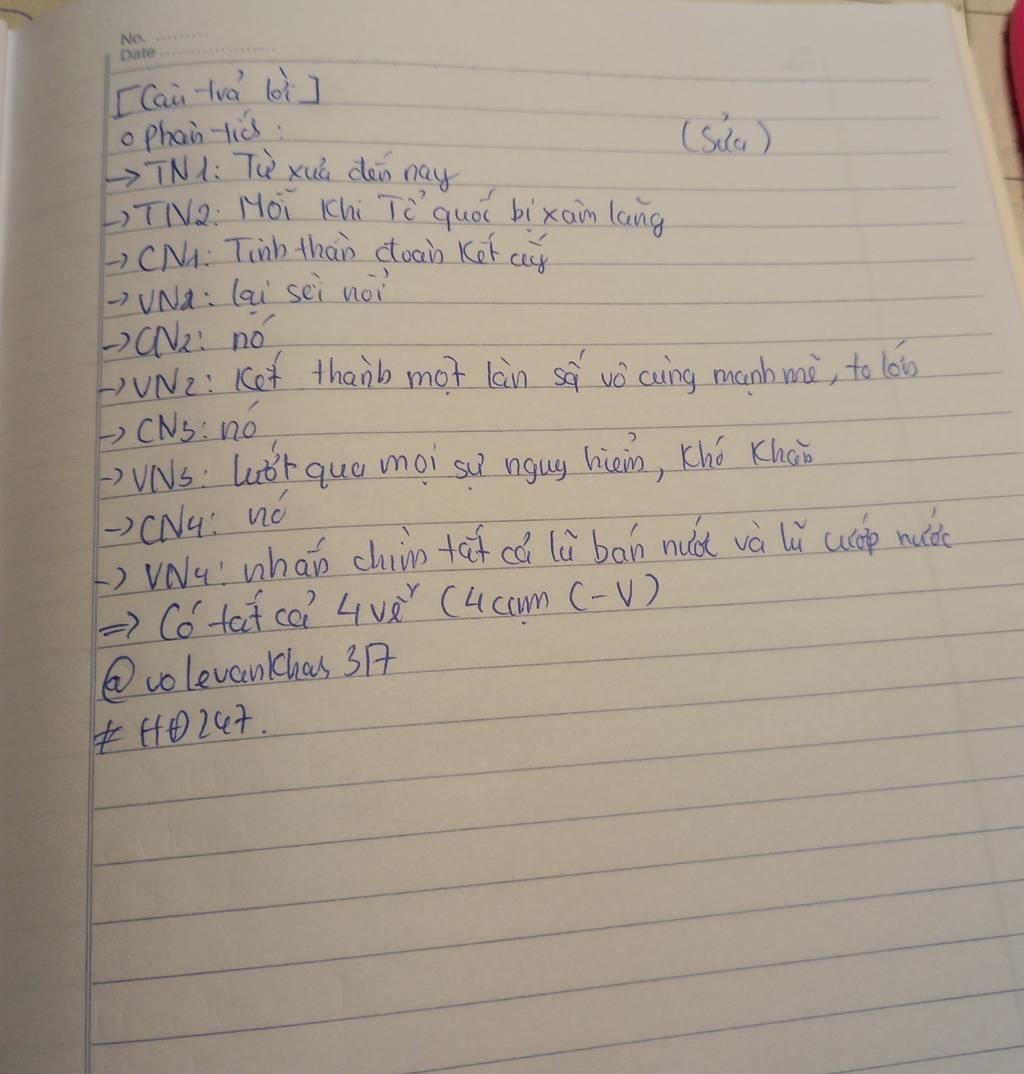 No. .........
Date ....................
[Câu trả lời]
o Phân tích: (Sửa)
→ TN1: Từ xưa đến nay
→ TN2: Mỗi khi Tổ quốc bị xâm lăng
→ CN1: Tinh thần đoàn kết ấy
→ VN1: lại sôi nổi
→ CN2: nó
→ VN2: Kết thành một làn sóng vô cùng mạnh mẽ, to lớn
→ CN3: nó
→ VN3: lướt qua mọi sự nguy hiểm, khó khăn
→ CN4: nó
→ VN4: nhấn chìm tất cả lũ bán nước và lũ cướp nước
=> Có tất cả 4 vế (4 cụm C-V)
@volevankhas 317
# HĐ247.